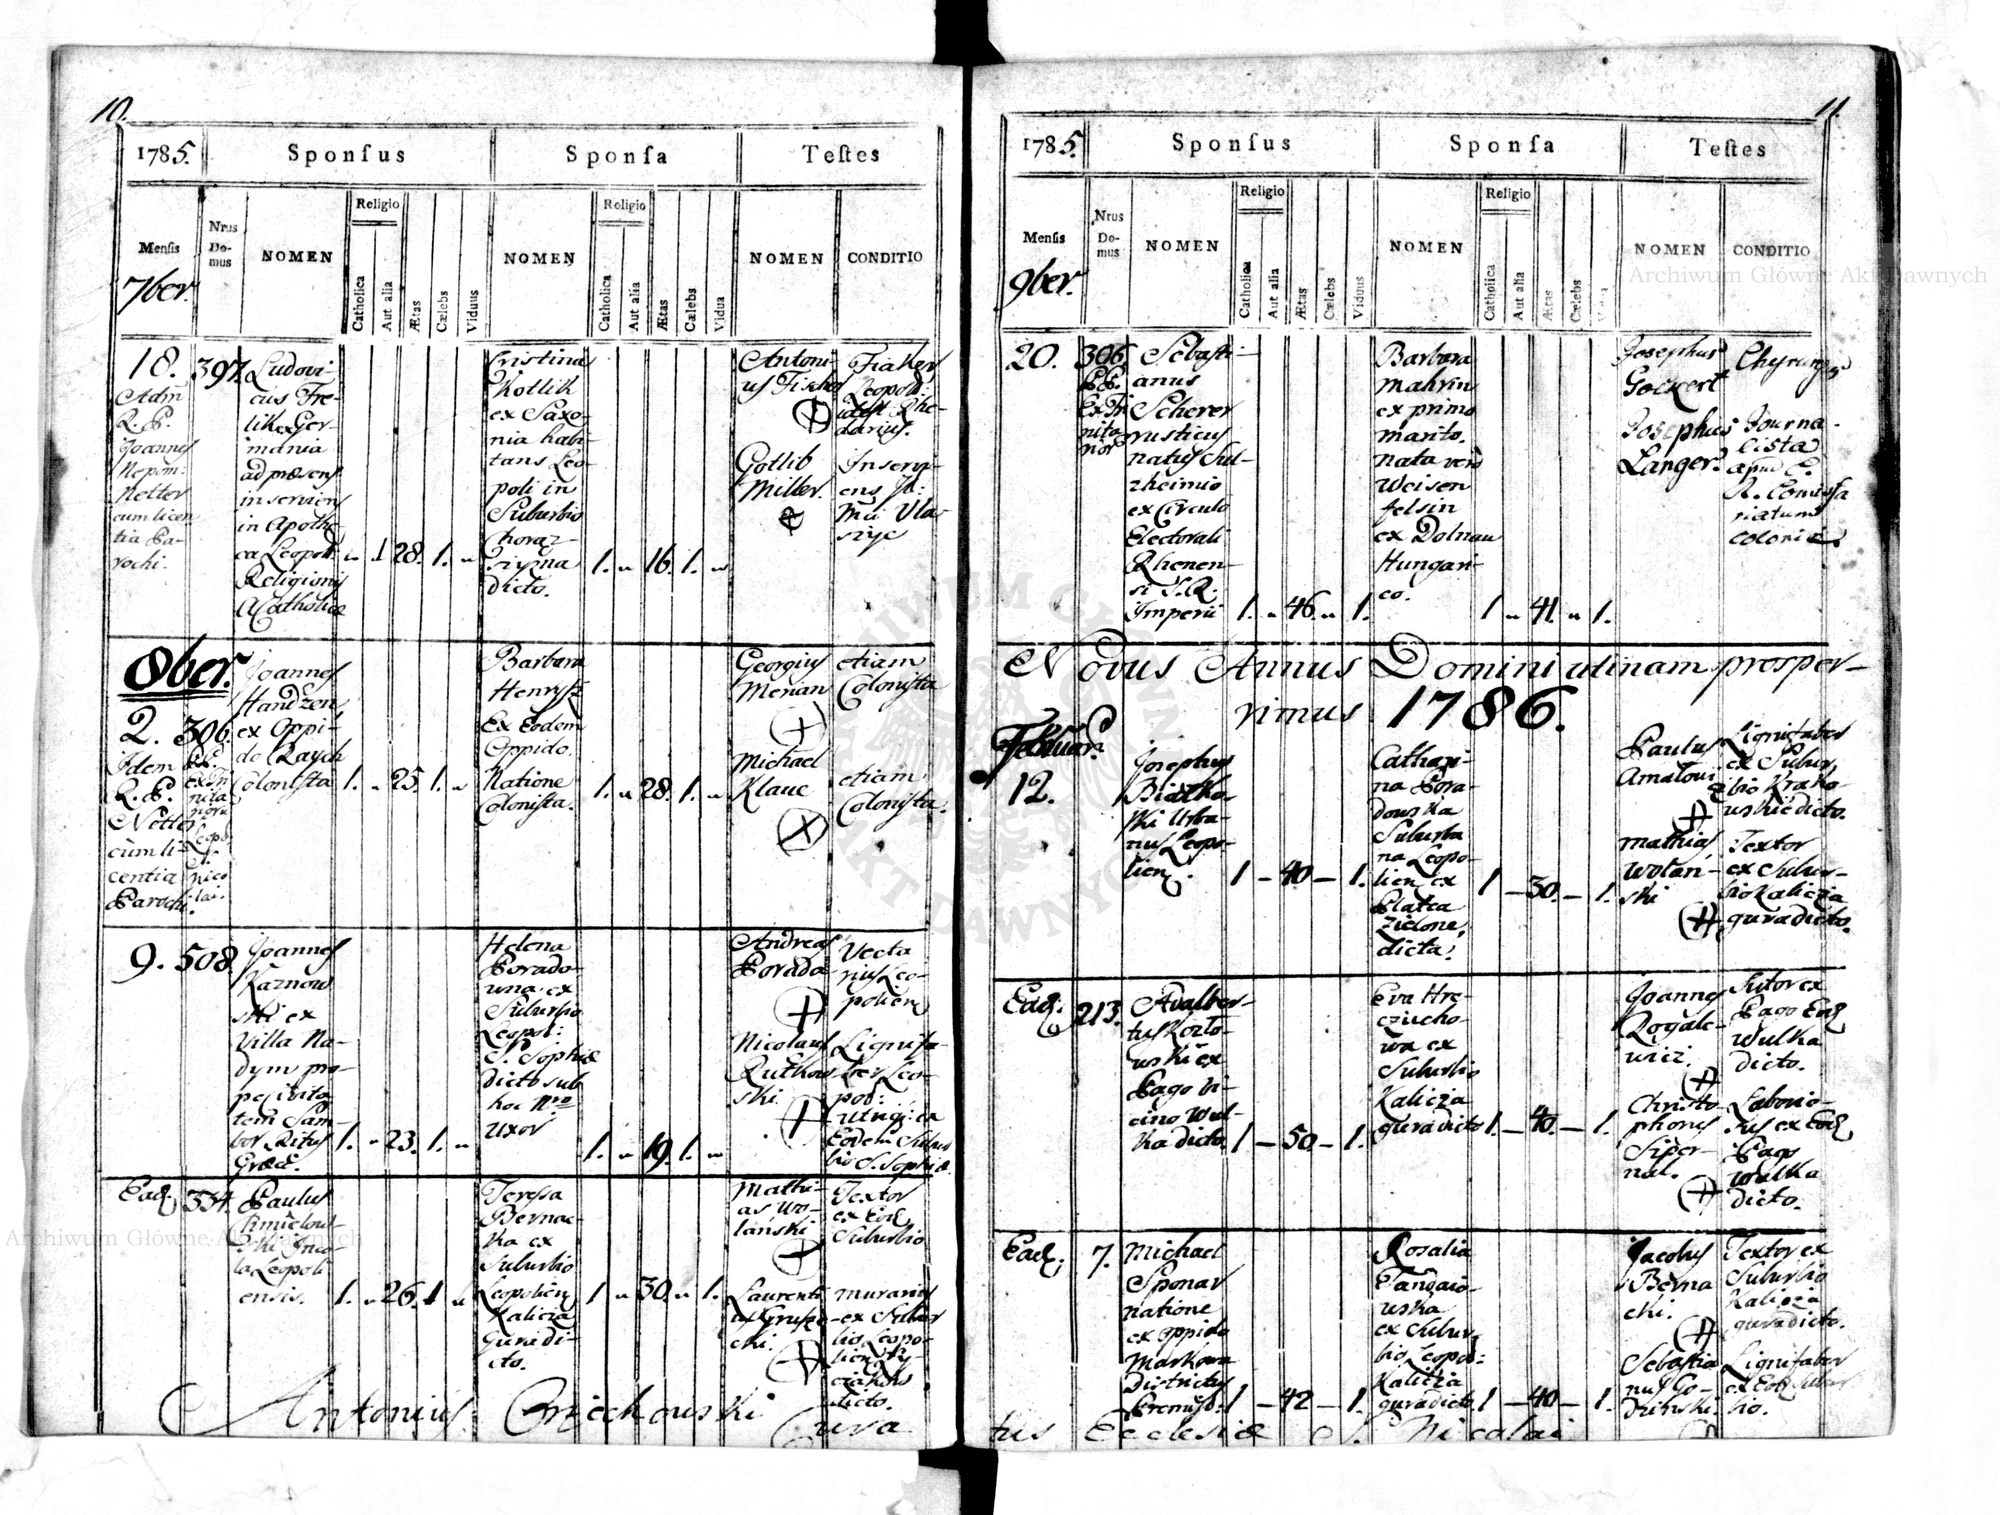 10.
1785.
Sponsus
Sponsa
Testes
Mensis
7ber.
Nrus
Do-
mus
NOMEN
Religio
Catholica
Aut alia
Ætas
Cælebs
Viduus
NOMEN
Religio
Catholica
Aut alia
Ætas
Cælebs
Vidua
NOMEN
CONDITIO
18.
Adm
R. P.
Joannes
Nepom:
Netter
cum licen
tia Pa-
rochi.
397.
Ludovi-
cus Fre-
lik ex Ger-
mania
ad præsens
inserviens
in Apothe
ca Leopoli
Religionis
Acatholicæ
„ 1 28. 1. „
Cristina
Kotlik
ex Saxo-
nia habi-
tans Leo-
poli in
Suburbio
Choraz-
sizna
dicto.
1. „ 16. 1. „
Antoni-
us Fischer
Gotlib
Miller.
Fiaker
Leopoli:
idest Rhe-
darius.
Inservi-
ens
8ber.
2.
Idem
R. P.
Netter
cum li-
centia
Parochi.
306.
P.P.
Ex Tri
nita
Leopo
S.
Nico
lai.
Joannes
Handzen
ex Oppi-
do Raych
Colonista
1. „ 25. 1. „
Barbara
Henrysz
Ex Eodem
Oppido.
Natione
Colonista.
1. „ 28. 1. „
Georgius
Merian
Michael
Klauc
etiam
Colonista
etiam
Colonista.
9. 508.
Joannes
Kaznow
ski ex
Villa Na-
dym pro-
pe civita
tem Sam-
bor Ritus
Græci.
1. „ 23. 1. „
Helena
Porado-
wna ex
Suburbio
Leopol:
S. Sophiæ
dicto sub
hoc Nro
Uxor
1. „ 19. 1. „
Andreas
Porada
Nicolaus
Rutkow
ski
Vecta
rius Leo-
polien
Lignifa-
ber Leo-
pol:
utriq: ex
Eodem Subur
bio S. Sophiæ.
Ead. 334.
Paulus
Chmielow-
ski Inco-
la Leopoli
ensis.
1. „ 26. 1 „
Teressa
Bernac-
ka ex
Suburbio
Leopolien
Kalicza
Gura di-
cto.
1 „ 30. „ 1.
Mathi-
as Wo-
lanski
Laurenti
us
cki.
Textor
ex Eod.
Suburbio
murarius
ex Subur
bio Leopo-
lien
dicto.
Antonius Orzechowski Cura
11.
1785.
Sponsus
Sponsa
Testes
Mensis
9ber.
Nrus
Do-
mus
NOMEN
Religio
Catholica
Aut alia
Ætas
Cælebs
Viduus
NOMEN
Religio
Catholica
Aut alia
Ætas
Cælebs
Vidua
NOMEN
CONDITIO
20.
306
P.P.
Ex Tri
nita
nor
Sebasti-
anus
Scherer
rusticus
natus Sul-
zheimio
ex Circulo
Electorali
Rhenen-
si S. R.
Imperii
1. „ 46. „ 1.
Barbara
Mahrin
ex primo
marito.
nata vero
Weisen
felsin
ex Dolnau
Hungari-
co.
1 „ 41. „ 1.
Josephus
Gockert
Josephus
Langer.
Chyrurgus
Journa-
lista
apud C.
R. Comissa
riatum
colonia
Novus Annus Domini utinam prosper-
rimus 1786.
Februar.
12.
Josephus
Białko-
ski Urba-
nus Leopo-
lien.
1 – 40 – 1.
Cathari-
na Pora-
dowska
Suburba
na Leopo-
lien ex
Platea
Zielone,
dicta.
1 – 30. – 1.
Paulus
Amatowi
Mathias
Wolan-
ski
Lignifaber
ex Subur
bio Krako-
wskie dicto.
Textor
ex Subur-
bio Kalicza
gura dicto.
Ead. 213.
Adalber-
tus Kozło-
wski ex
Pago vi-
cino Wul-
ka dicto.
1 – 50 – 1.
Eva Hre-
czucho-
wa ex
Suburbio
Kalicza
gura dicto
1. – 40. – 1.
Joannes
Rogale-
wicz.
Christo
phorus
Siper-
nal.
Sutor ex
Pago Eod
Wulka
dicto.
Laborio-
sus ex Eod
Pago
Wulka
dicto.
Ead. 7.
Michael
Sponar
natione
ex oppido
Markowa
Districtus
1 – 42 – 1.
Rosalia
wska
ex Subur-
bio Leopol:
Kalicza
gura dicto
1 – 40 – 1.
Jacobus
Berna
cki.
Sebastia
nus Go-
Textor ex
Suburbio
Kalicza
gura dicto.
Lignifaber
ex Eod Subur
bio.
tus Ecclesiæ S. Nicolai
Archiwum Główne Akt Dawnych
Archiwum Główne Akt Dawnych
ARCHIWUM GŁÓWNE AKT DAWNYCH